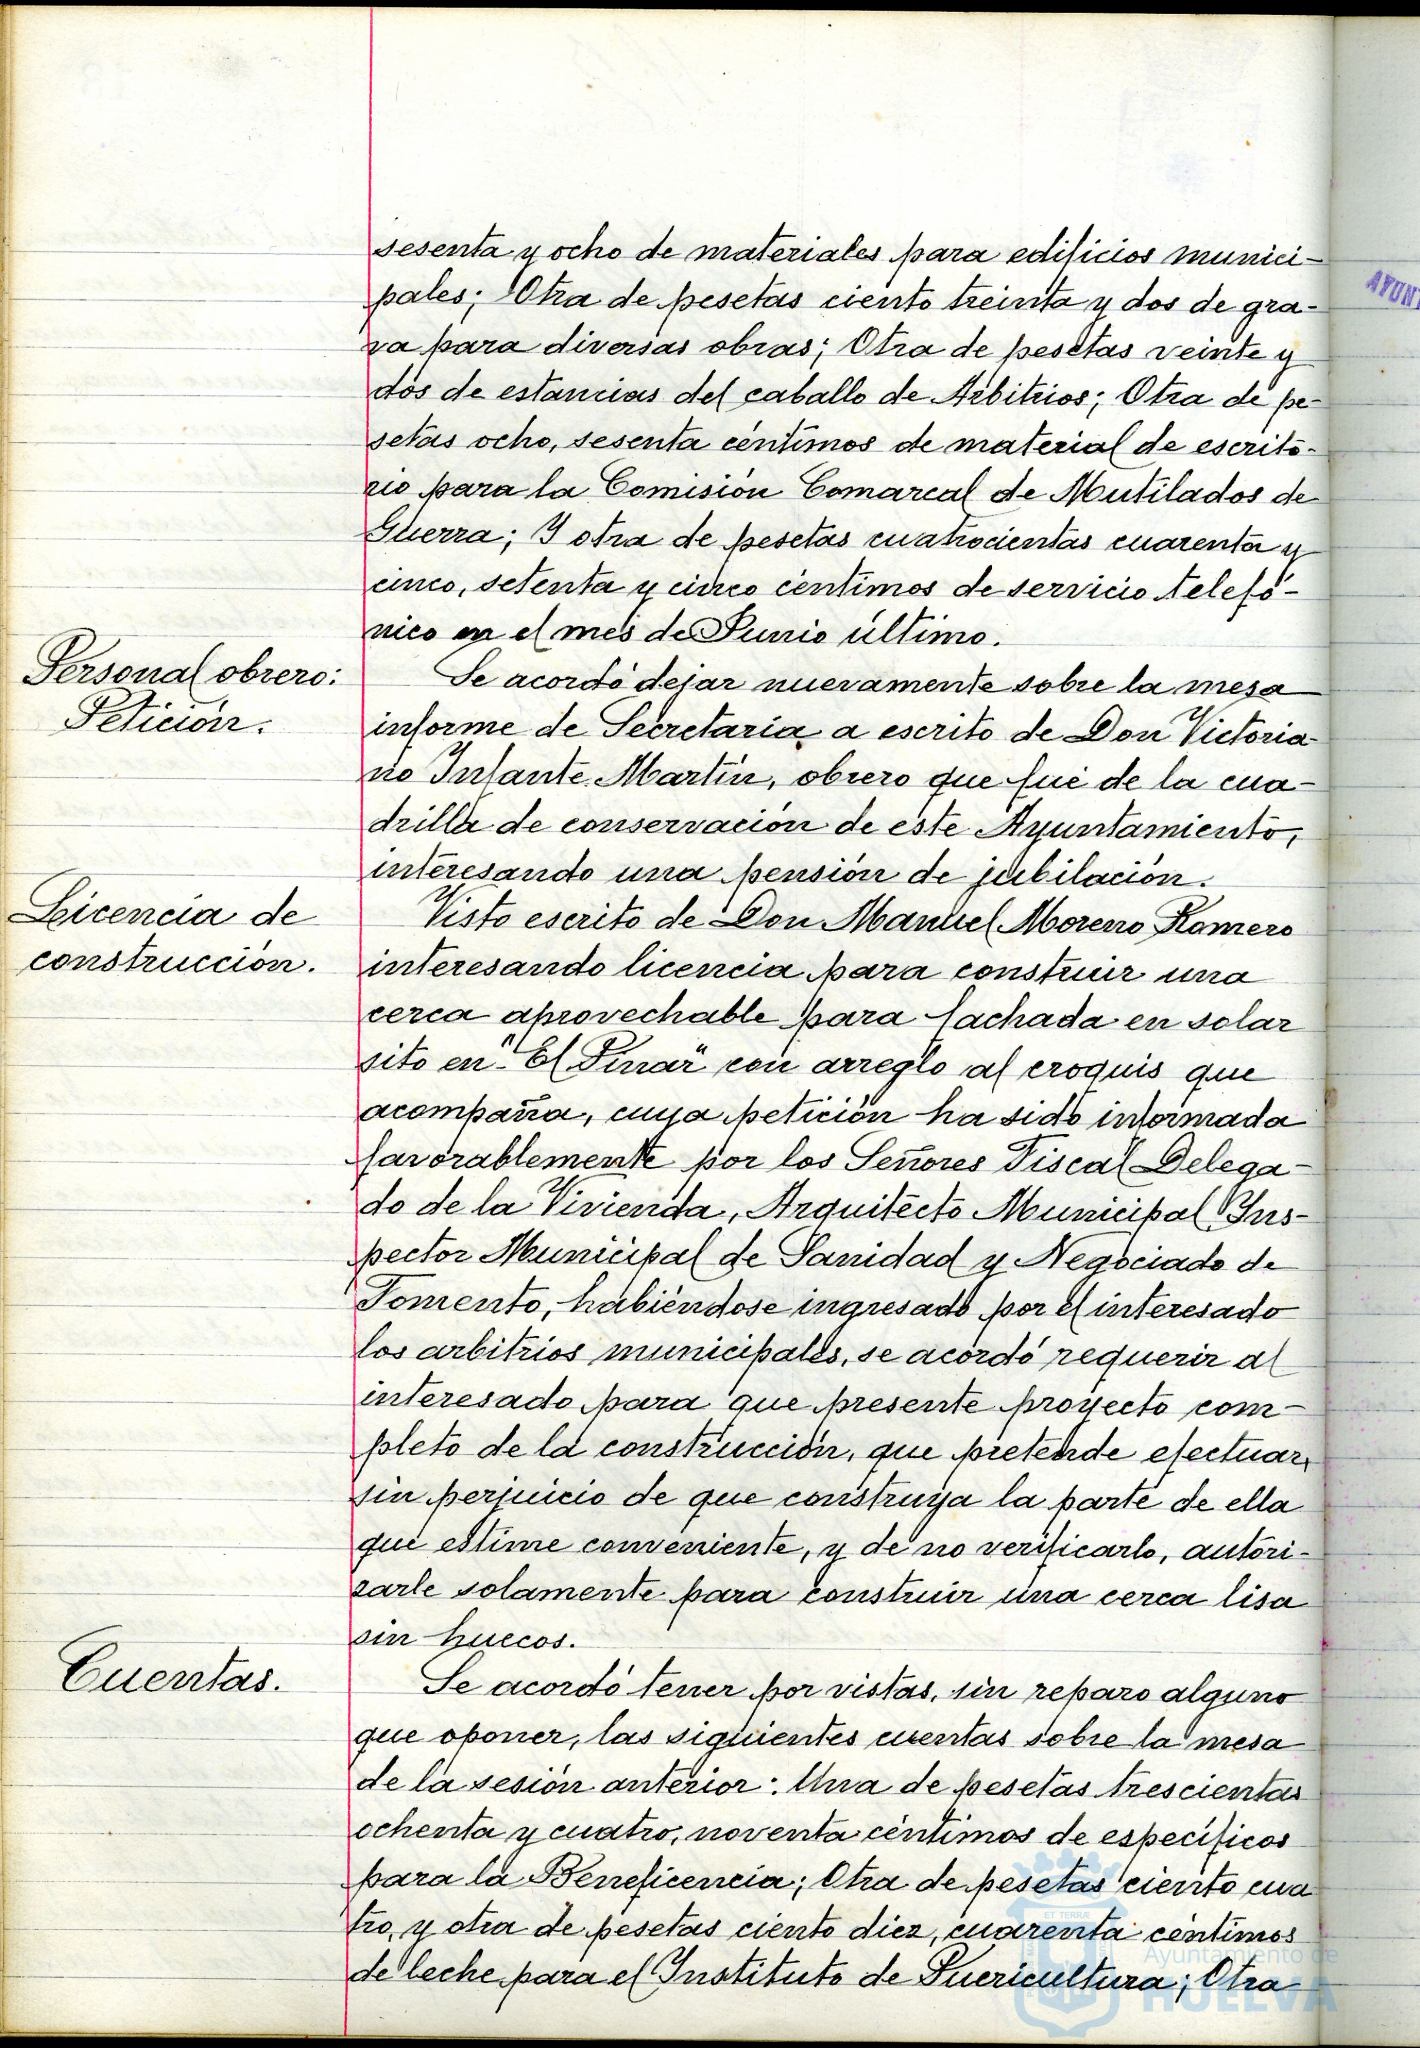 sesenta y ocho de materiales para edificios munici-
pales; Otra de pesetas ciento treinta y dos de gra-
va para diversas obras; Otra de pesetas veinte y
dos de estancias del caballo de Arbitrios; Otra de pe-
setas ocho, sesenta céntimos de material de escrito-
rio para la Comisión Comarcal de Mutilados de
Guerra; Y otra de pesetas cuatrocientas cuarenta y
cinco, setenta y cinco céntimos de servicio telefó-
nico en el mes de Junio último.
Personal obrero:
Petición.
Se acordó dejar nuevamente sobre la mesa
informe de Secretaría a escrito de Don Victoria
no Infante Martín, obrero que fué de la cua-
drilla de conservación de este Ayuntamiento,
interesando una pensión de jubilación.
Licencia de
construcción.
Visto escrito de Don Manuel Moreno Romero
interesando licencia para construir una
cerca aprovechable para fachada en solar
sito en "El Pinar" con arreglo al croquis que
acompaña, cuya petición ha sido informada
favorablemente por los Señores Fiscal Delega-
do de la Vivienda, Arquitecto Municipal Ins-
pector Municipal de Sanidad y Negociado de
Fomento, habiéndose ingresado por el interesado
los arbitrios municipales, se acordó requerir al
interesado para que presente proyecto com-
pleto de la construcción, que pretende efectuar,
sin perjuicio de que construya la parte de ella
que estime conveniente, y de no verificarlo, autori-
zarle solamente para construir una cerca lisa
sin huecos.
Cuentas.
Se acordó tener por vistas, sin reparo alguno
que oponer, las siguientes cuentas sobre la mesa
de la sesión anterior: Una de pesetas trescientas
ochenta y cuatro, noventa céntimos de específicos
para la Beneficencia; Otra de pesetas ciento cua
tro, y otra de pesetas ciento diez, cuarenta céntimos
de leche para el Instituto de Puericultura; Otra
AYUNT
ET TERRÆ
Ayuntamiento de
HUELVA